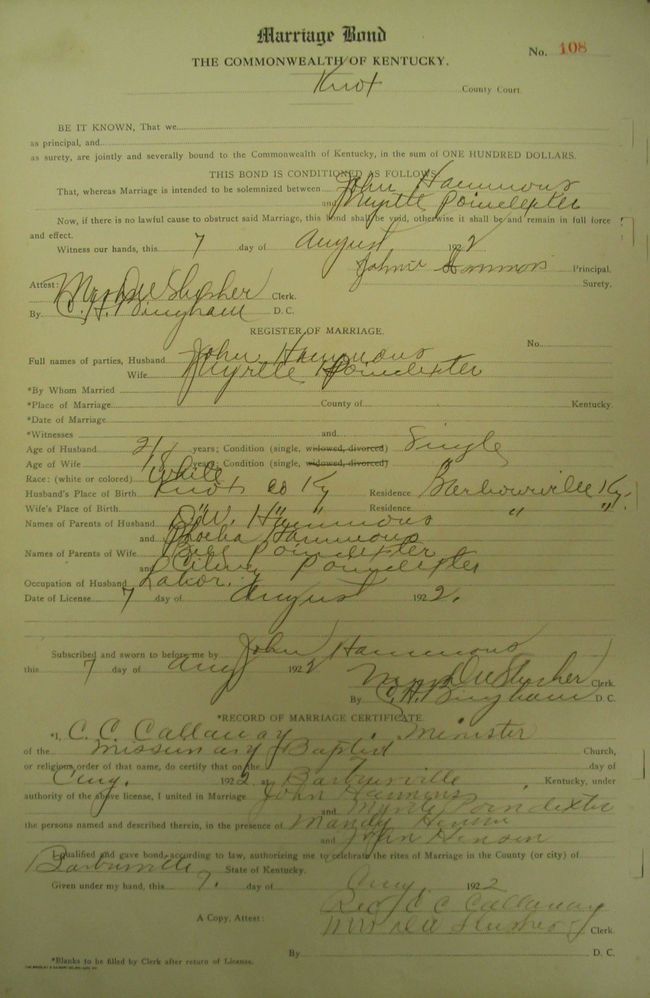 Marriage Bond
No. 108
THE COMMONWEALTH OF KENTUCKY.
Knox County Court
BE IT KNOWN, That we
as principal, and
as surety, are jointly and severally bound to the Commonwealth of Kentucky, in the sum of ONE HUNDRED DOLLARS.
THIS BOND IS CONDITIONED AS FOLLOWS
That, whereas Marriage is intended to be solemnized between John Hammons
and Myrtle Poindexter
Now, if there is no lawful cause to obstruct said Marriage, this bond shall be void, otherwise it shall be and remain in full force
and effect.
Witness our hands, this 7 day of August 1922
Johnie Hammons Principal.
Surety.
Attest: Clerk.
By C. H. Bingham D. C.
REGISTER OF MARRIAGE.
No.
Full names of parties, Husband John Hammons
Wife Myrtle Poindexter
*By Whom Married
*Place of Marriage County of Kentucky.
*Date of Marriage
*Witnesses and
Age of Husband 21 years; Condition (single, widowed, divorced) Single
Age of Wife 18 years; Condition (single, widowed, divorced) "
Race: (white or colored) White
Husband's Place of Birth Knox Co Ky Residence Barbourville Ky.
Wife's Place of Birth " " " Residence " "
Names of Parents of Husband D. W. Hammons
and Phoeba Hammons
Names of Parents of Wife Poindexter
and Poindexter
Occupation of Husband Labor.
Date of License 7 day of August 1922.
Subscribed and sworn to before me by John Hammons
this 7 day of Aug 1922
Clerk.
By C. H. Bingham D. C.
*RECORD OF MARRIAGE CERTIFICATE.
*I, C. C. Callaway Minister
of the Missunary Baptist Church,
or religious order of that name, do certify that on the day of
Aug. 1922, at Barbourville Kentucky, under
authority of the above license, I united in Marriage John Hammons
and Myrtle Poindexter
the persons named and described therein, in the presence of Mandy Hensen
and John Hensen
I qualified and gave bond according to law, authorizing me to celebrate the rites of Marriage in the County (or city) of
Barbourville State of Kentucky.
Given under my hand, this 7. day of Aug. 1922
Rev C C Callaway
A Copy, Attest: Clerk.
By D. C.
*Blanks to be filled by Clerk after return of License.